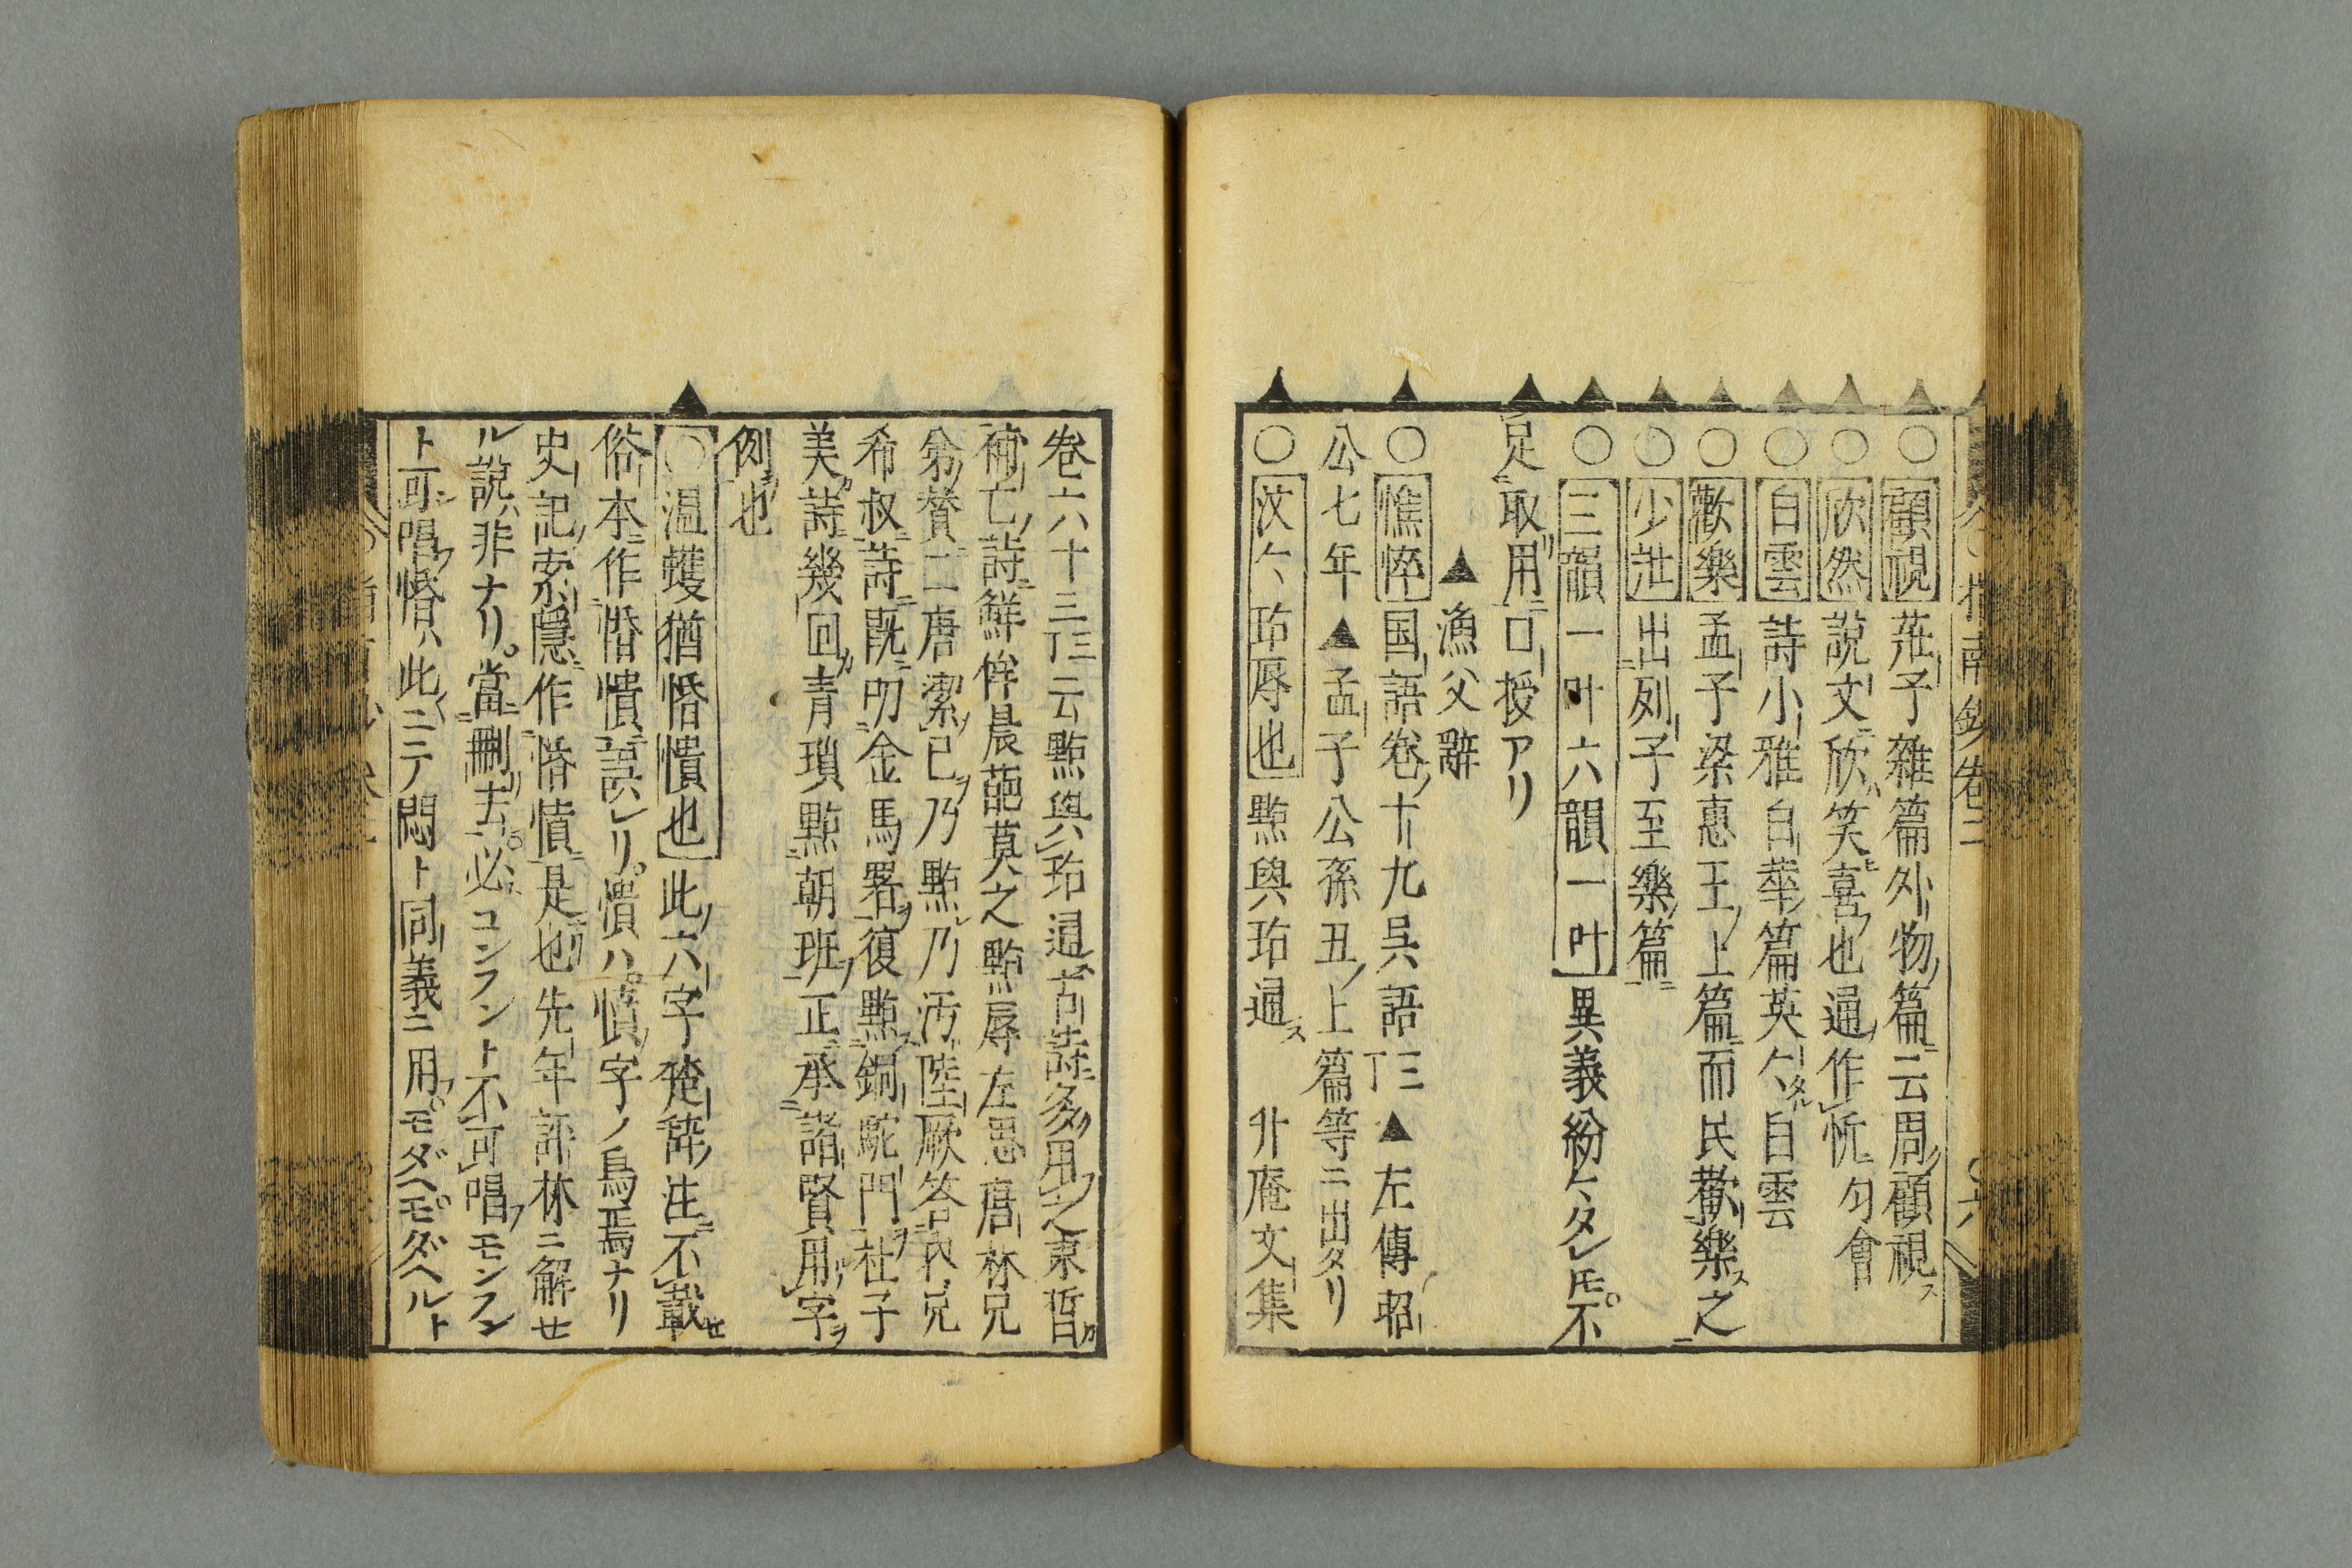 指南鈔卷二
○顧視莊子雜篇外物篇ニ云周顧視ス
○欣然說文ニ欣ハ笑喜也通作忻匀會
○白雲詩小雅白華篇英〻タル白雲
○歡樂孟子梁惠王ノ上篇ニ而民歡樂ス之
○少泄出列子至樂篇ニ
○三韻一叶六韻一叶異義紛〻タレ𪜈不
足取用ニ口授アリ
▲漁父辭
○憔悴国語卷ノ十九吳語三丁▲左傳昭
公七年▲孟子公孫丑ノ上篇等ニ出タリ
○汶〻玷辱也點與玷通ス 升庵文集
卷六十三三丁云點與玷通古詩多用之束晳カ
補亡ノ詩ニ鮮侔晨葩莫之點辱左思唐林兄
弟ノ賛ニ二唐潔已乃點乃汚陸厥答兄
希叔詩ニ既叨金馬署復點銅駝門ヲ杜子
美カ詩ニ幾回カ青瑣點朝班正承諸賢用字ヲ
例也
○温蠖猶惛憒也此ノ六字楚辞ノ注ニ不載セ
俗本ニ作惛憒誤レリ憒ハ憤ノ字ノ烏焉ナリ
史記ノ索隱ニ作惛憤是也先年評林ニ解セ
ル說ハ非ナリ當刪去必コンフント不可唱モンフン
ト可唱惛ハ此ニテ悶ト同義ニ用フモダヘモダヘルト